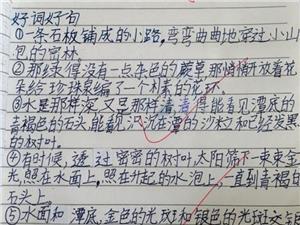 好词好句
①一条石板铺成的小路,弯弯曲曲地穿过小山
包的密林。
②那绿得没有一点杂色的蕨草,那悄悄开放着花
朵给珍珠泉编了一个彩色的花环。
③水是那样深又是那样清,清得能看见潭底的
青褐色的石头,能看见沉在潭的沙粒和已经发黑
的树叶。
④有时候,透过密密的树叶,太阳筛下一束束金
光,照在水面上,照在升起的水泡上,一直到青褐的
石头上。
⑤水面和潭底,金色的光斑和银色的光斑交错